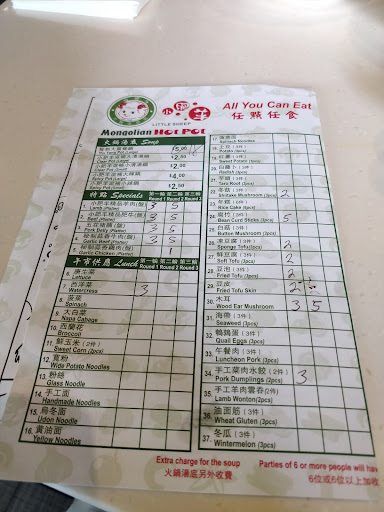 小肥羊
LITTLE SHEEP
Mongolian Hot Pot
All You Can Eat
任點任食
火鍋湯底 Soup
Yin Yang Pot (Large)
$2.50
$4.00
$2.50
特點 Specials
第一輪 第二輪 第三輪
Round 1 Round 2 Round 3
1.
Lamb (Plate)
3 5
2.
Beef (Plate)
5 5
3.
Pork Belly (Plate)
4.
Garlic Beef (Plate)
3 5
午市供應 Lunch
第一輪 第二輪 第三輪
Round 1 Round 2 Round 3
6. 唐生菜
Lettuce
7. 西洋菜
Watercress
3
8. 菠菜
Spinach
9. 大白菜
Napa Cabbage
10. 西蘭花
Broccoli
11. 鮮玉米 (2件)
Sweet Corn (2pcs)
12. 寬粉
Wide Potato Noodles
13. 粉絲
Glass Noodle
14. 手工面
Handmade Noodles
15. 烏冬面
Udon Noodle
16. 黄油面
Yellow Noodles
17.
Spinach Noodle
18. 土豆 (3件)
Potato (3pcs)
19.
Sweet Potato (3pcs)
20.
Radish (3pcs)
21.
Taro Root (3pcs)
22.
Shiitake Mushroom (3pcs)
2
23. 年糕 (3件)
Rice Cake (3pcs)
24.
Bean Curd Sticks (3pcs)
5
25. 白菇 (3件)
Button Mushroom (3pcs)
26. 凍豆腐 (3件)
Sponge Tofu (3pcs)
2
27. 鮮豆腐 (3件)
Soft Tofu (3pcs)
28. 豆泡 (3件)
2
29. 豆皮
Fried Tofu Skin
30. 木耳
Wood Ear Mushroom
3 5
31. 海帶 (3件)
Seaweed (3pcs)
32. 鵪鶉蛋 (3件)
Quail Eggs (3pcs)
33. 午餐肉 (3件)
Luncheon Pork (3pcs)
34. 手工菜肉水餃 (2件)
Pork Dumplings (2pcs)
3
35. 手工羊肉雲吞 (2件)
Lamb Wonton (2pcs)
36. 油面筋 (3件)
Wheat Gluten (3pcs)
37. 冬瓜 (3件)
Wintermelon (3pcs)
Extra charge for the soup
火鍋湯底另外收費
Parties of 6 or more people will hav
6位或6位以上加收